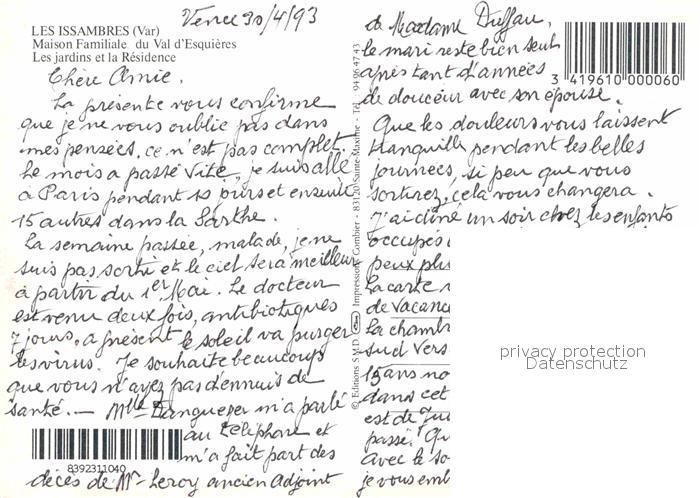 Vence 30/4/93
LES ISSAMBRES (Var)
Maison Familiale du Val d'Esquières
Les jardins et la Résidence
Chère Amie.
La présente vous confirme
que je ne vous oublie pas dans
mes pensées, ce n'est pas complet.
Le mois a passé vite, je suis allé
à Paris pendant 10 jours et ensuite
15 autres dans la Sarthe.
La semaine passée, malade, je ne
suis pas sorti et le ciel sera meilleur
à partir du 1er Mai. Le docteur
est venu deux fois, antibiotiques
7 jours, a présent le soleil va purger
les virus. Je souhaite beaucoup
que vous n'ayez pas d'ennuis de
santé. — Mlle m'a parlé
au téléphone et
m'a fait part des
décès de Mr Leroy ancien Adjoint
8392311040
© Editions S.M.D. Impressions Combier - 83120 Sainte-Maxime - Tél. 94 96 47 43
& Madame Duffau.
le mari reste bien seul
après tant d'années
de douceur avec son épouse.
3 419610 000060
Que les douleurs vous laissent
tranquille pendant les belles
journées, si peu que vous
sortirez, cela vous changera.
J'ai dîné un soir chez les enfants
occupés
peux plus
La carte
de Vacanc
La chamb
sud vers
15 ans no
dans cet
est de Ju
passé. Qu
Avec le so
je vous emb
privacy protection
Datenschutz